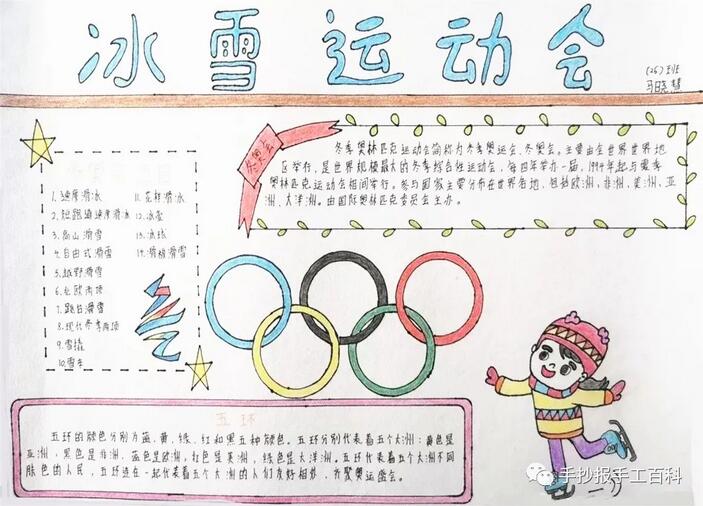 冰雪运动会
(26)班
马晓慧
冬奥会
冬季奥林匹克运动会简称为冬季奥运会、冬奥会。主要由全世界世界地
区举行,是世界规模最大的冬季综合性运动会,每四年举办一届,1994年起与夏季
奥林匹克运动会相间举行。参与国家主要分布在世界各地,包括欧洲、非洲、美洲、亚
洲、大洋洲。由国际奥林匹克委员会主办。
1.速度滑冰
2.短跑道速度滑冰
3.高山滑雪
4.自由式滑雪
5.越野滑雪
6.北欧两项
7.跳台滑雪
8.现代冬季两项
9.雪橇
10.雪车
11.花样滑冰
12.冰壶
13.冰球
14.滑板滑雪
五环
五环的颜色分别为蓝、黄、绿、红和黑五种颜色。五环分别代表着五个大洲:黄色是
亚洲,黑色是非洲,蓝色是欧洲,红色是美洲,绿色是大洋洲。五环代表着五个大洲不同
肤色的人民,五环连在一起代表着五个大洲的人们友好相处,齐聚奥运盛会。
手抄报手工百科